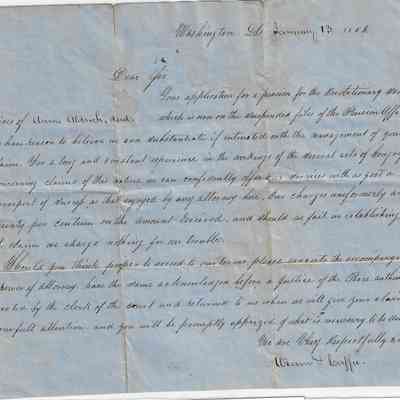 Washington D.C. January 13
Dear Sir
Your application for a pension for the Revolutionary
of Anna Aldrich, and, which is now on the suspended files of the Pension Offi
have reason to believe we can substantiate if intrusted with the management of you
claim. For a long and constant experience in the workings of the several acts of
concerning claims of this nature we can confidently offer services with as good a
prospect of success as that enjoyed by any attorney here. Our charges uniformly are
twenty per centum on the amount received, and should we fail in establishing
claim we charge nothing for our trouble.
Should you think proper to accede to our terms please execute the accompany
Power of attorney, have the same acknowledged before a Justice of the Peace
by the clerk of the court and returned to us when we will give your claim
our full attention, and you will be promptly apprized of what is necessary to be do
We are Very Respectfully